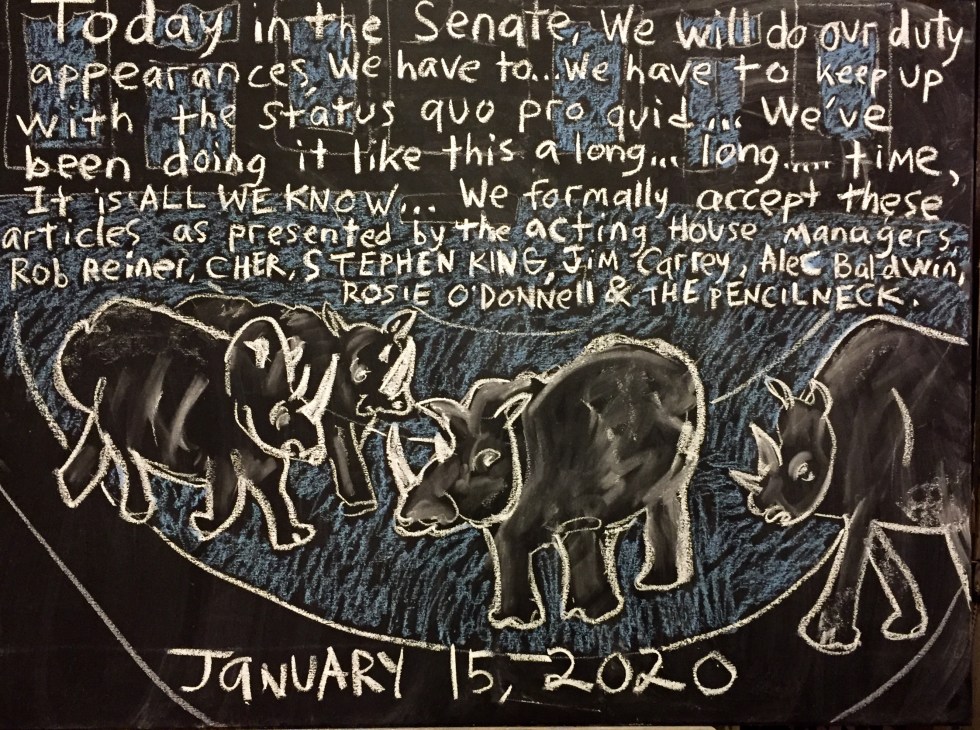 Today in the Senate, We will do our duty
appearances, We have to...We have to keep up
with the status quo pro quid... We've
been doing it like this a long... long..... time,
It is ALL WE KNOW... We formally accept these
articles as presented by the acting House Managers,
Rob Reiner, CHER, STEPHEN KING, Jim Carrey, Alec Baldwin,
ROSIE O'DONNell & THE PENCILNECK.
JANUARY 15, 2020